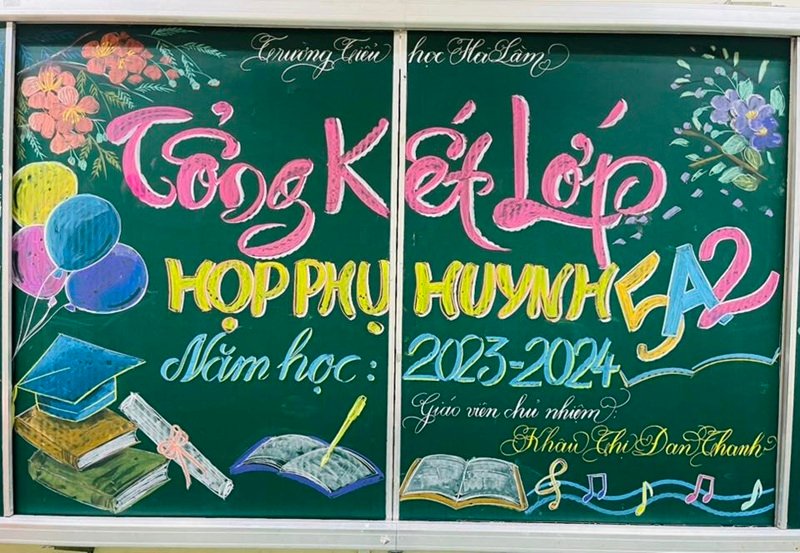 Trường Tiểu học Hà Lầm
Tổng Kết Lớp
HỌP PHỤ HUYNH 5A2
Năm học: 2023-2024
Giáo viên chủ nhiệm:
Khâu Thi Dan Thanh